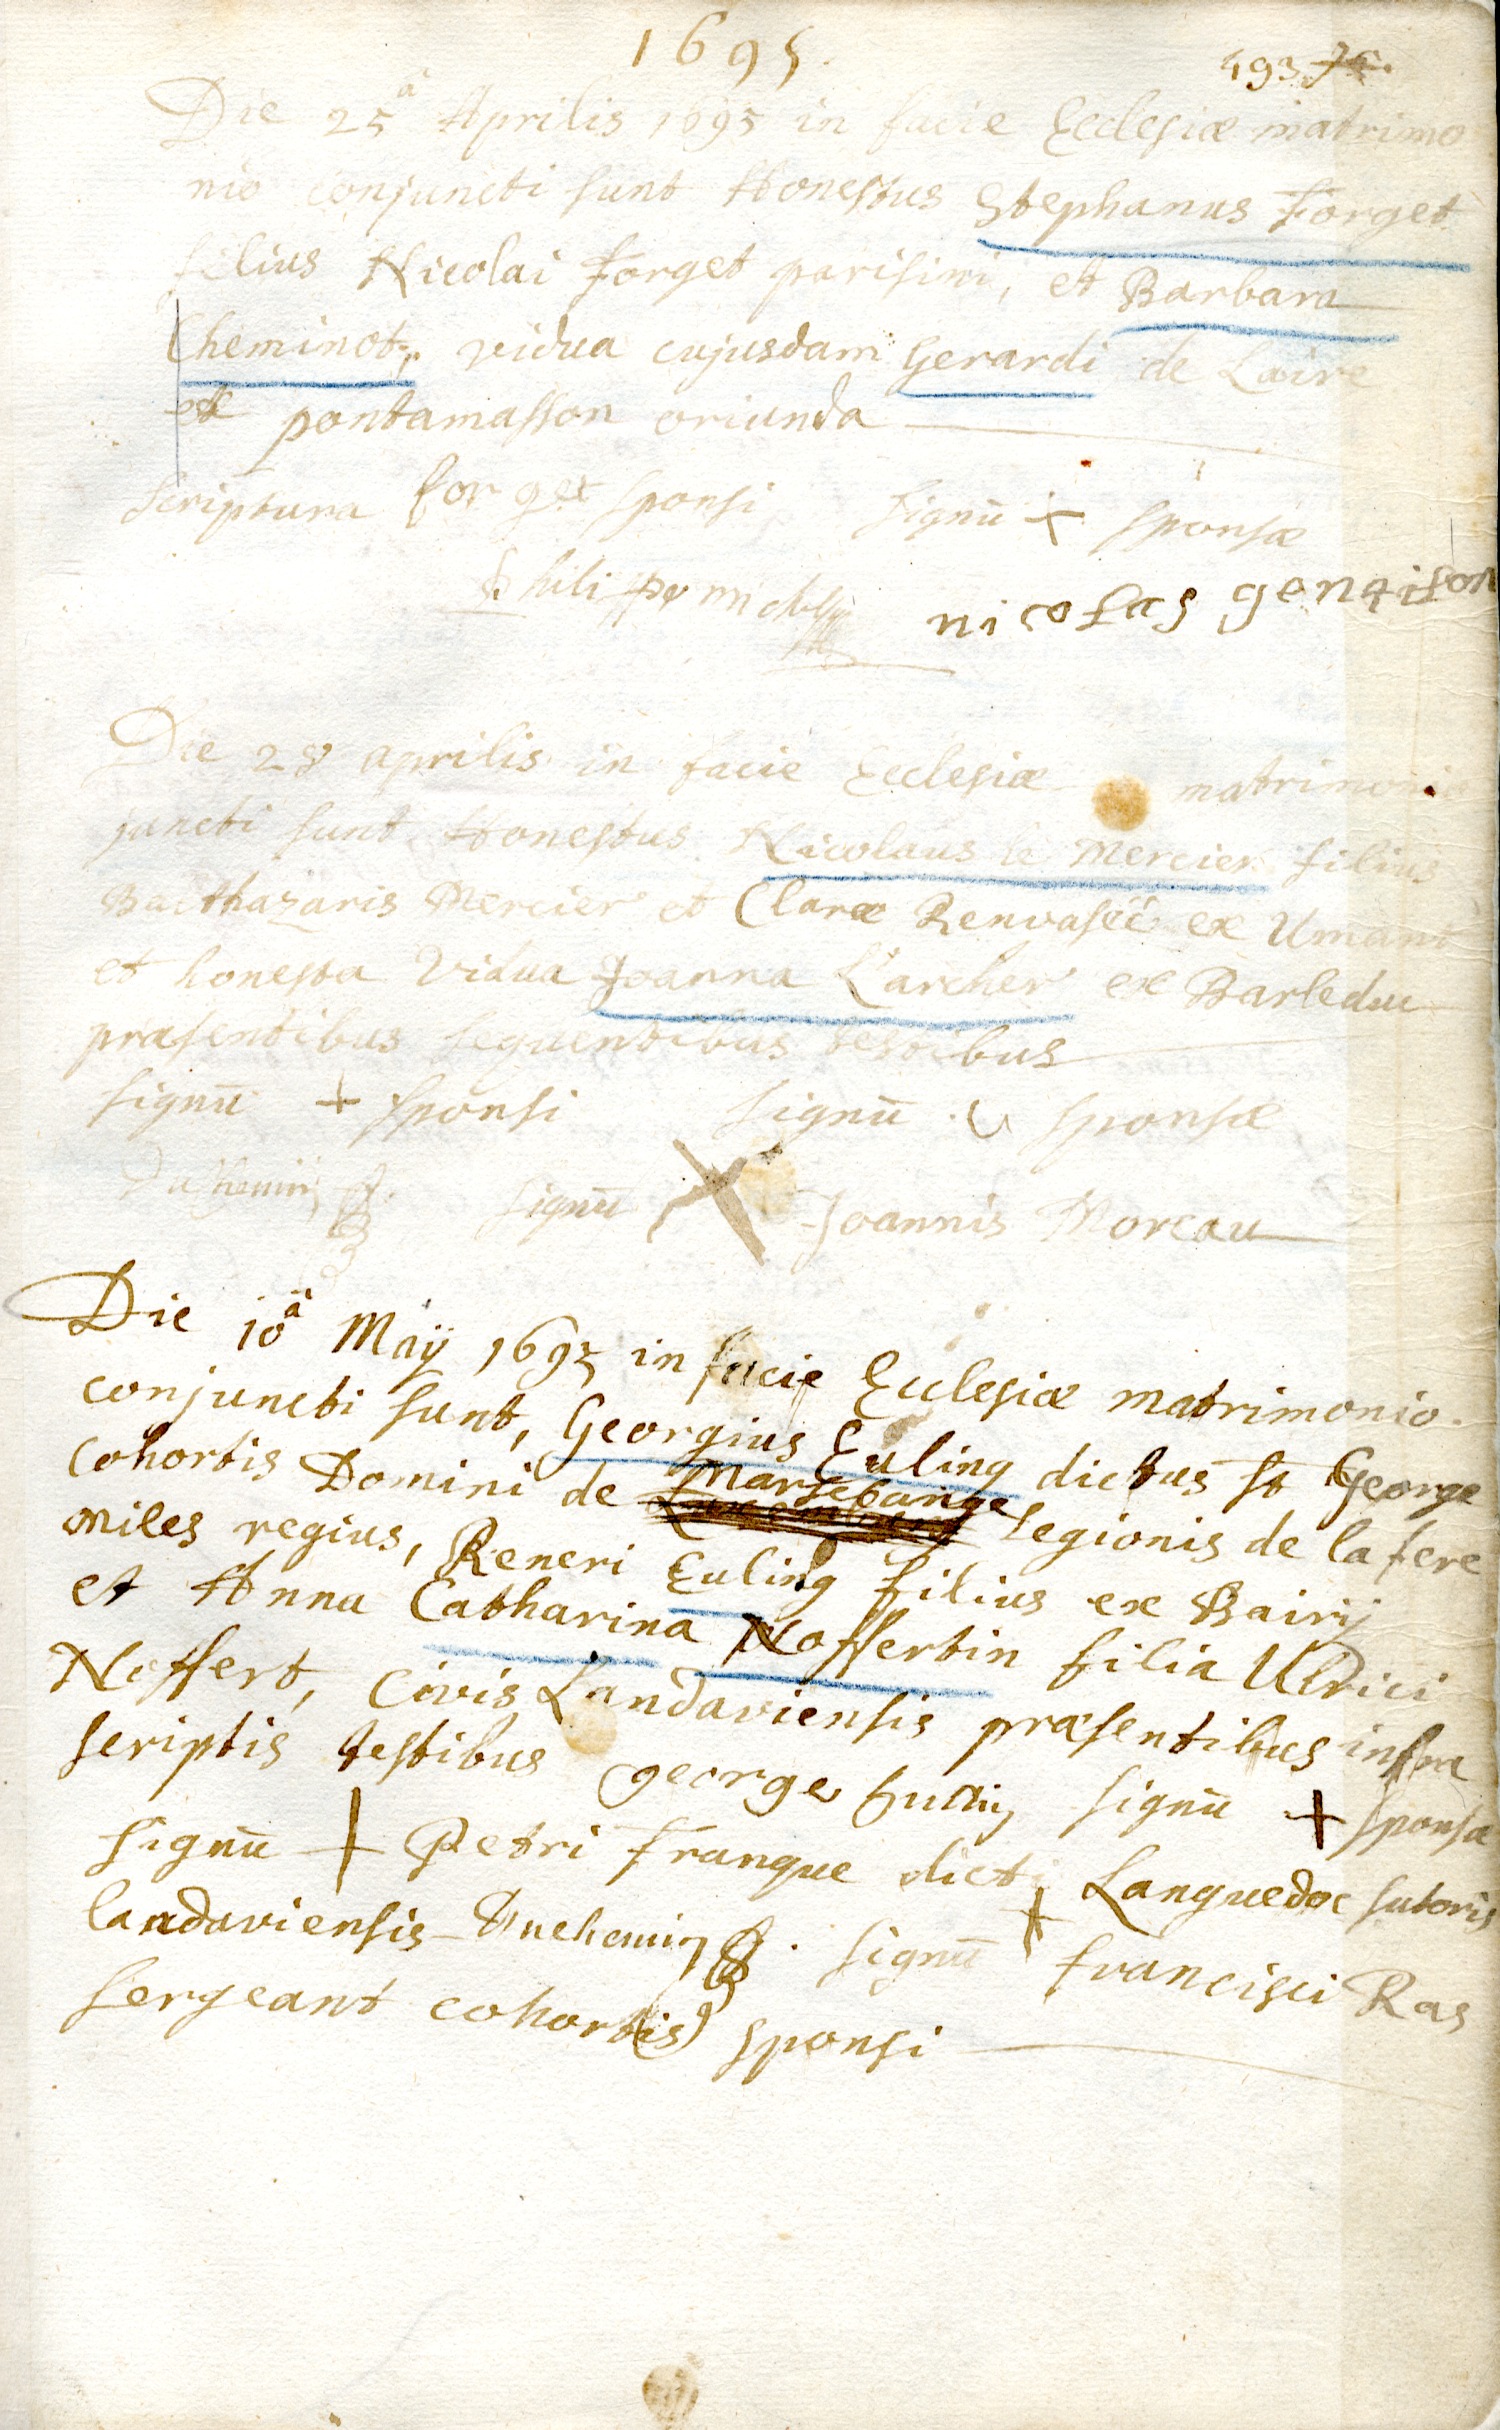 1695.
493
Die 25ª Aprilis 1695 in facie Ecclesiæ matrimo
nio conjuncti sunt Honestus Stephanus Forget
filius Nicolai Forget parisini, et Barbara
Cheminot, vidua cujusdam Gerardi de Laire
ex pontamasson oriunda
scriptura for get sponsi signū + sponsæ
nicolas
Die 28 aprilis in facie Ecclesiæ matrimonio
juncti sunt Honestus Nicolaus le Mercier filius
Balthazaris Mercier et Claræ ex
et honesta vidua Joanna L'archer ex Barleduc
præsentibus sequentibus testibus
signū + sponsi signū sponsæ
Duchemin signū X Joannis Moreau
Die 10ª Maÿ 1695 in facie Ecclesiæ matrimonio
conjuncti sunt, Georgius Euling dictus St George
cohortis Domini de legionis de la fere
miles regius, Reneri Euling filius ex
et Anna Catharina Noffertin filia Ulrici
Noffert, civis Landaviensis præsentibus infra
scriptis testibus george signū + sponsæ
signū + Petri franque dicti Languedoc sutoris
landaviensis Duchemin signū + francisci Ras
sergeant cohortis sponsi